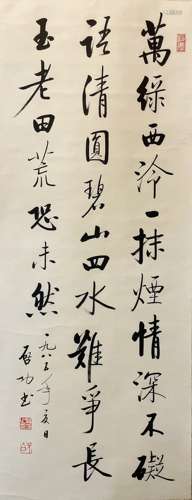 萬綠西泠一抹煙情深不礙
語清圓碧山四水難爭長
玉老田荒恐未然
一九八三年夏日
啓功書